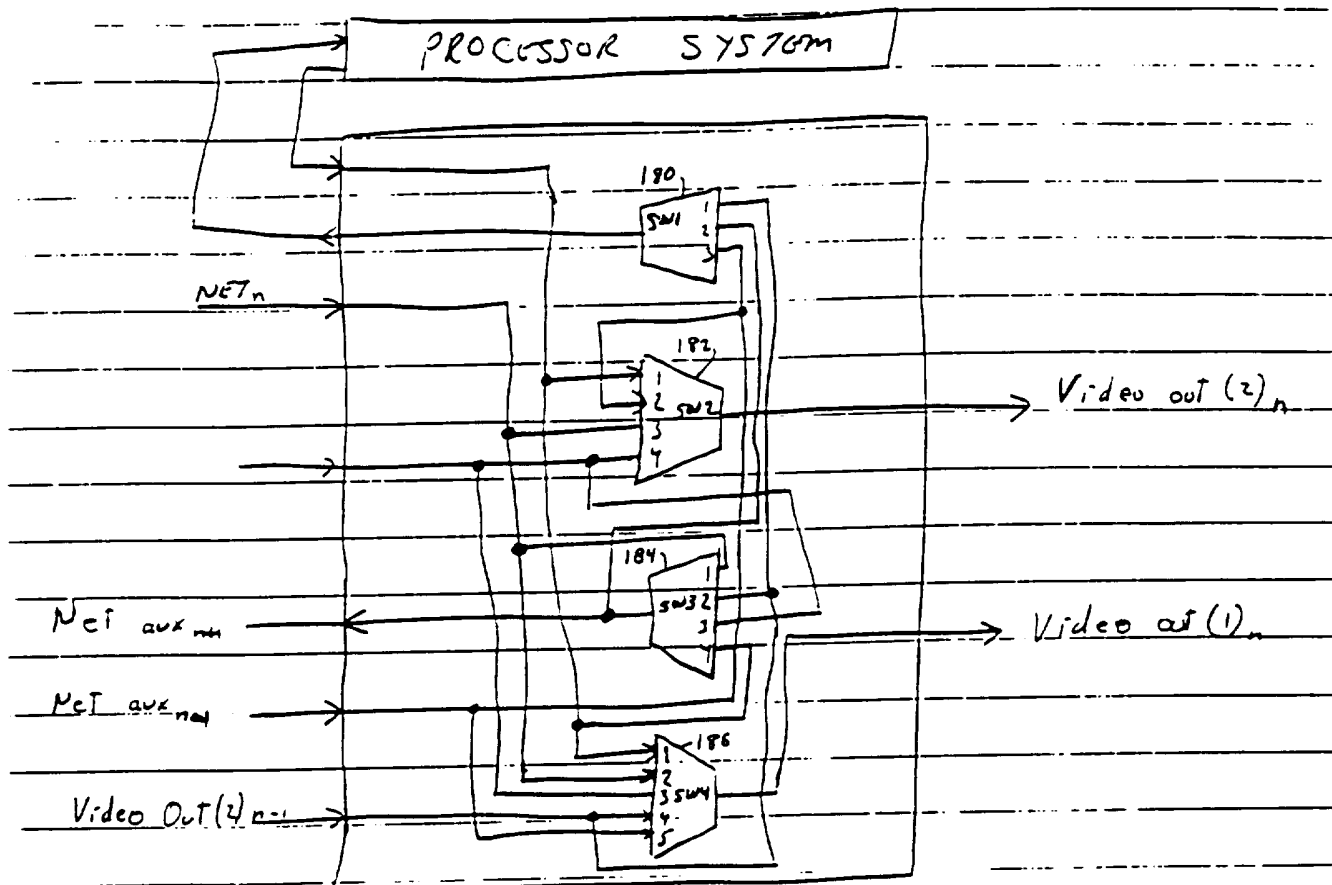 PROCESSOR SYSTEM
180
SW1
1
2
NETn
182
1
2
SW2
3
4
Video out (2)n
184
1
SW3 2
3
Net aux
Video out (1)n
Net aux
186
1
2
3 SW4
4
5
Video Out(2)n-1